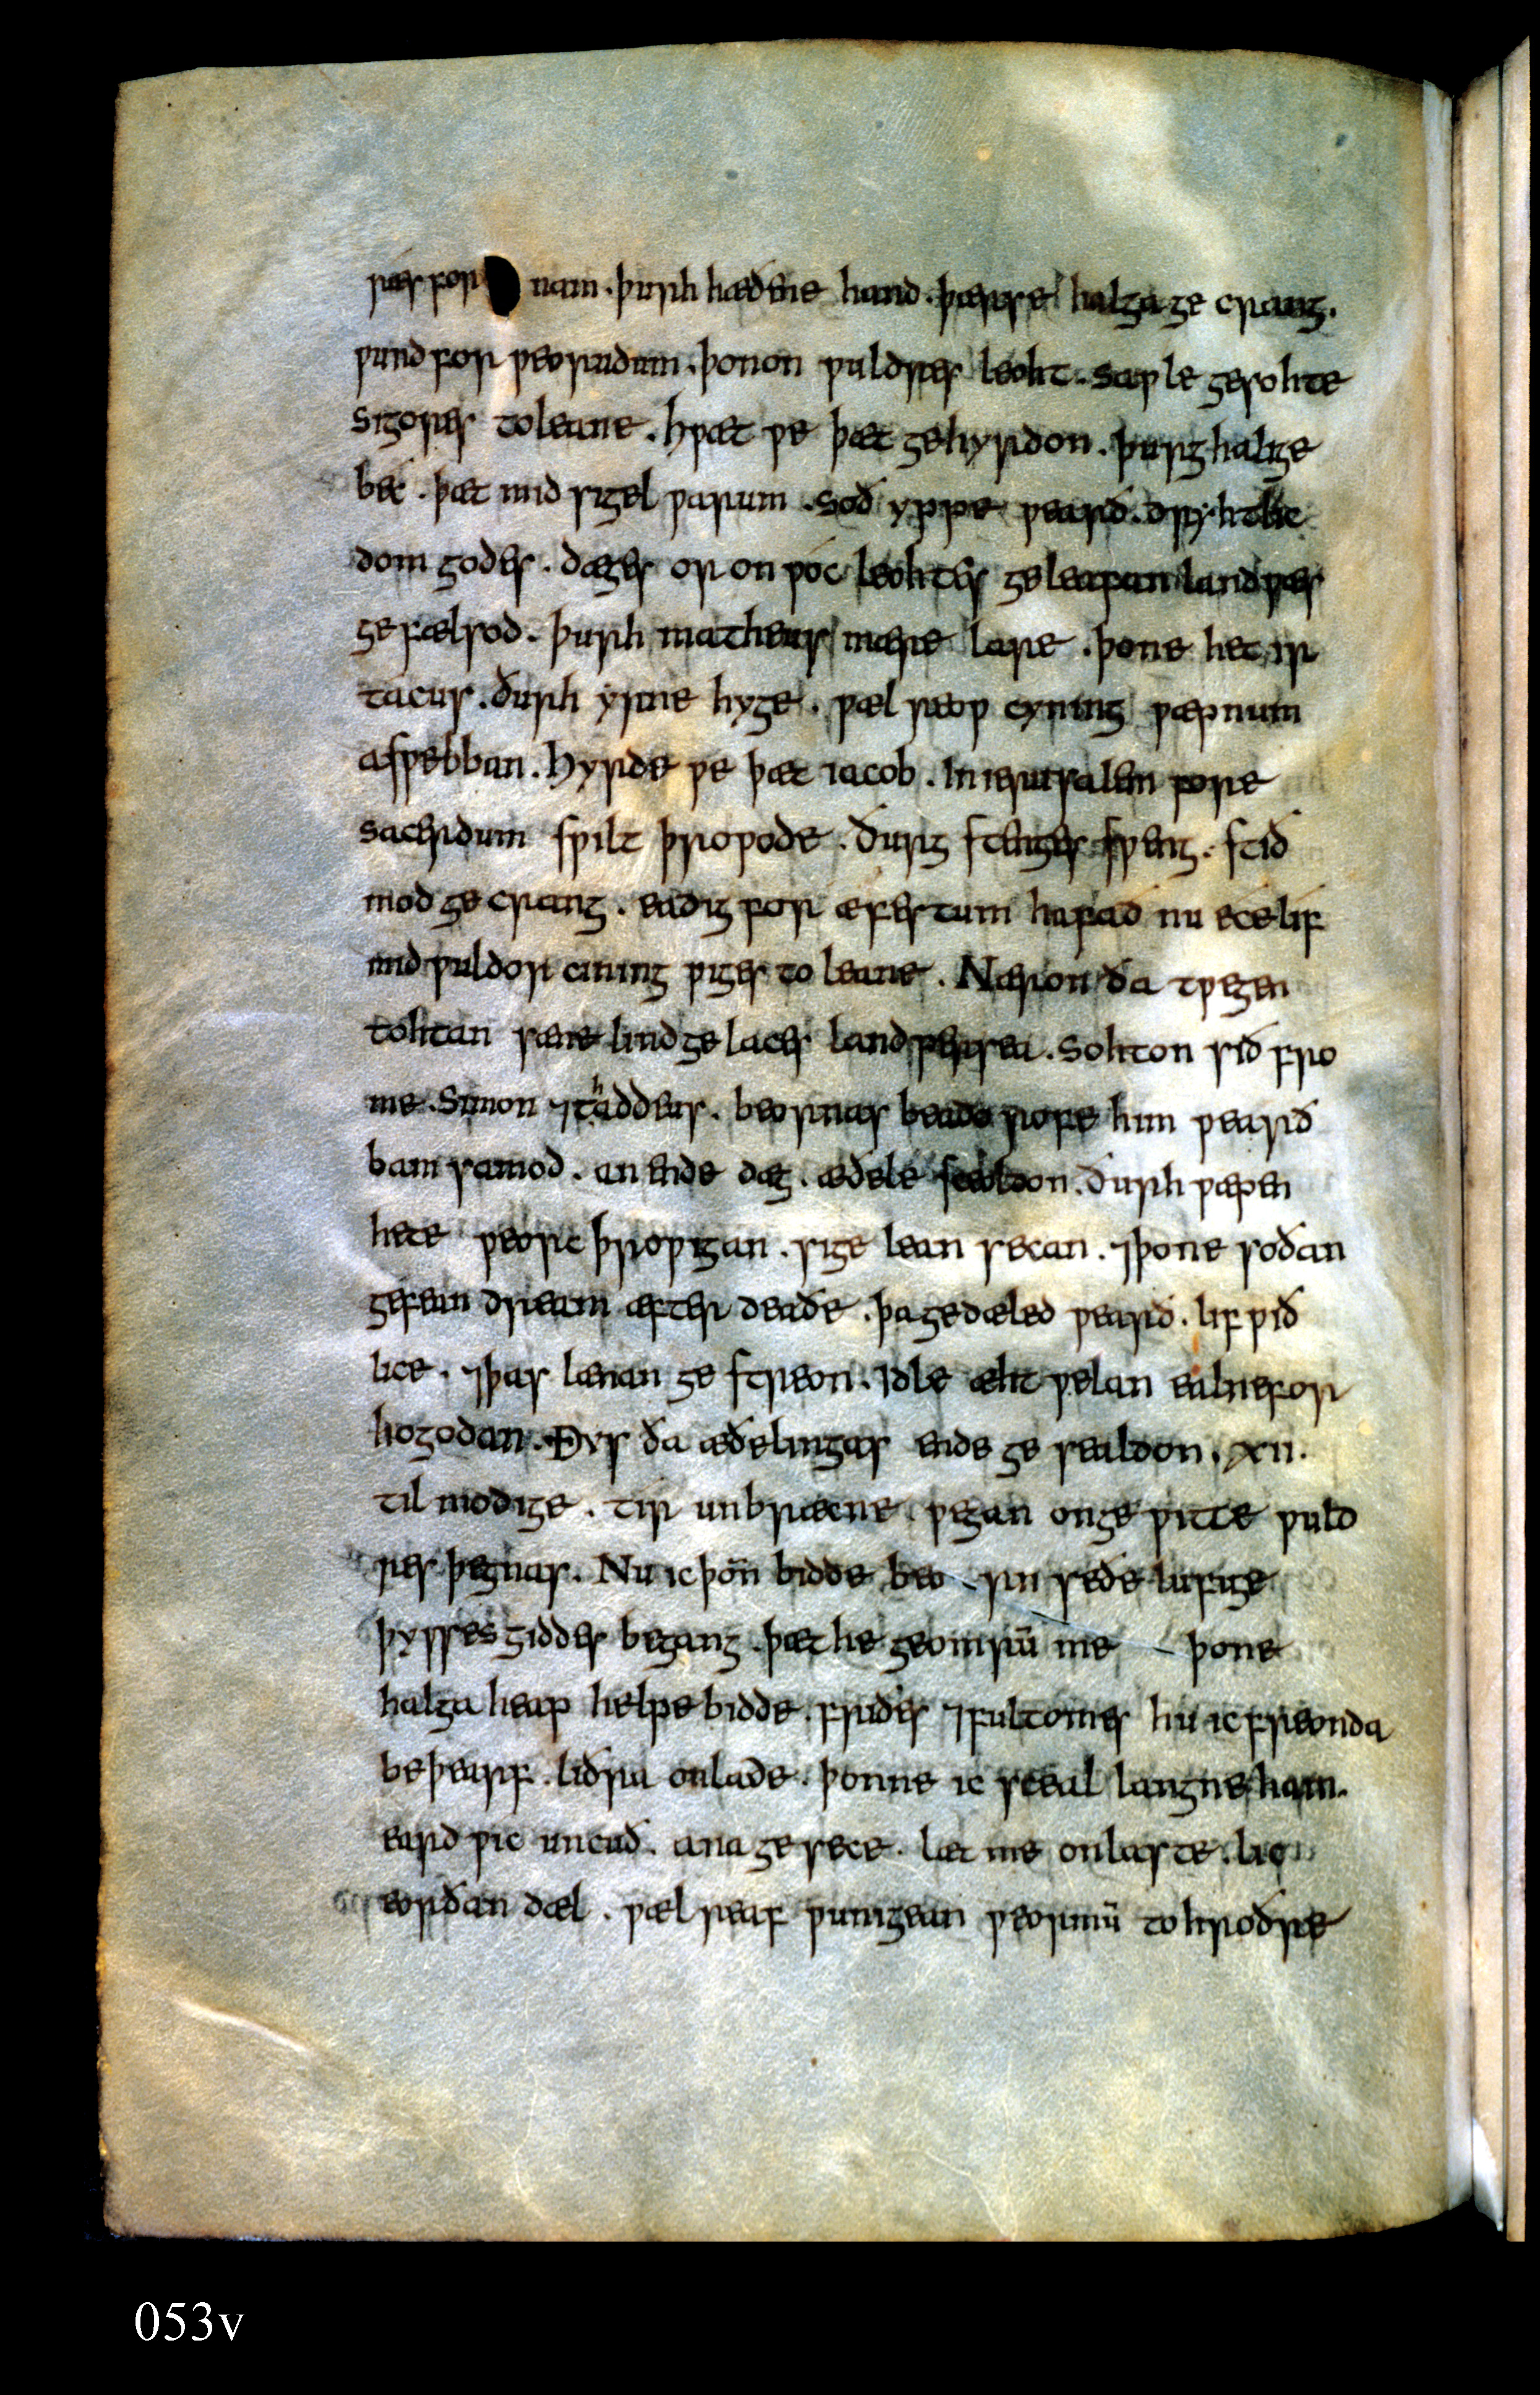 ræs for nam . þurh hæðene hand . þær se halga ge crang .
ƿund for ƿeorudum . þonon ƿuldres leoht . saƿle gesohte
sigores to leane . hƿæt ƿe þæt gehyrdon . þurg halige
béc . þæt mid sigel ƿarum . soð yppe ƿearð . dryhtlic
dom godes . dæges or onƿóc leohtes geleafan land ƿæs
gefælsod . þurh matheus mære lare . þone het ir
tacus . ðurh yrne hyge . ƿælreoƿ cyning ƿæpnum
asƿebban . hyrde ƿe þæt iacob . in ierusalem fore
sacerdum sƿilt þroƿode . ðurg stenges sƿeng . stið
mod ge crang . eadig for æfestum hafað nu ece lif
mid ƿuldor cining ƿiges to leane . Næron ða tƿegen
tohtan sæne lind ge laces land persea . sohton sið fro
me . Simon ⁊ thaddeus . beornas beado rofe him ƿearð
bam samod . an ende dæg . æðele sceoldon . ðurh ƿæpen
hete ƿeorc þroƿigan . sige lean secan . ⁊ þone soðan
gefean dream æfter deaðe . þa gedæled ƿearð . lif ƿið
lice . ⁊ þas lænan ge streon . idle æht ƿelan ealne for
hogodan . Ðys ða æðelingas ende ge sealdon . XII .
til modige . tir unbræcne ƿegan on ge ƿitte ƿuld
res þegnas . Nu ic þoñ bidde beo rn se ðe lufige
þysses giddes begang . þæt he geomrū me þone
halga heap helpe bidde . friðes ⁊ fultomes hu ic freonda
beþearf . liðra on lade . þonne ic sceal langne ham .
eard ƿic uncuð . ana gesece . læt me on laste . lic
eorðan dæl . ƿælreaf ƿunigean ƿeormū to hroðre
053v